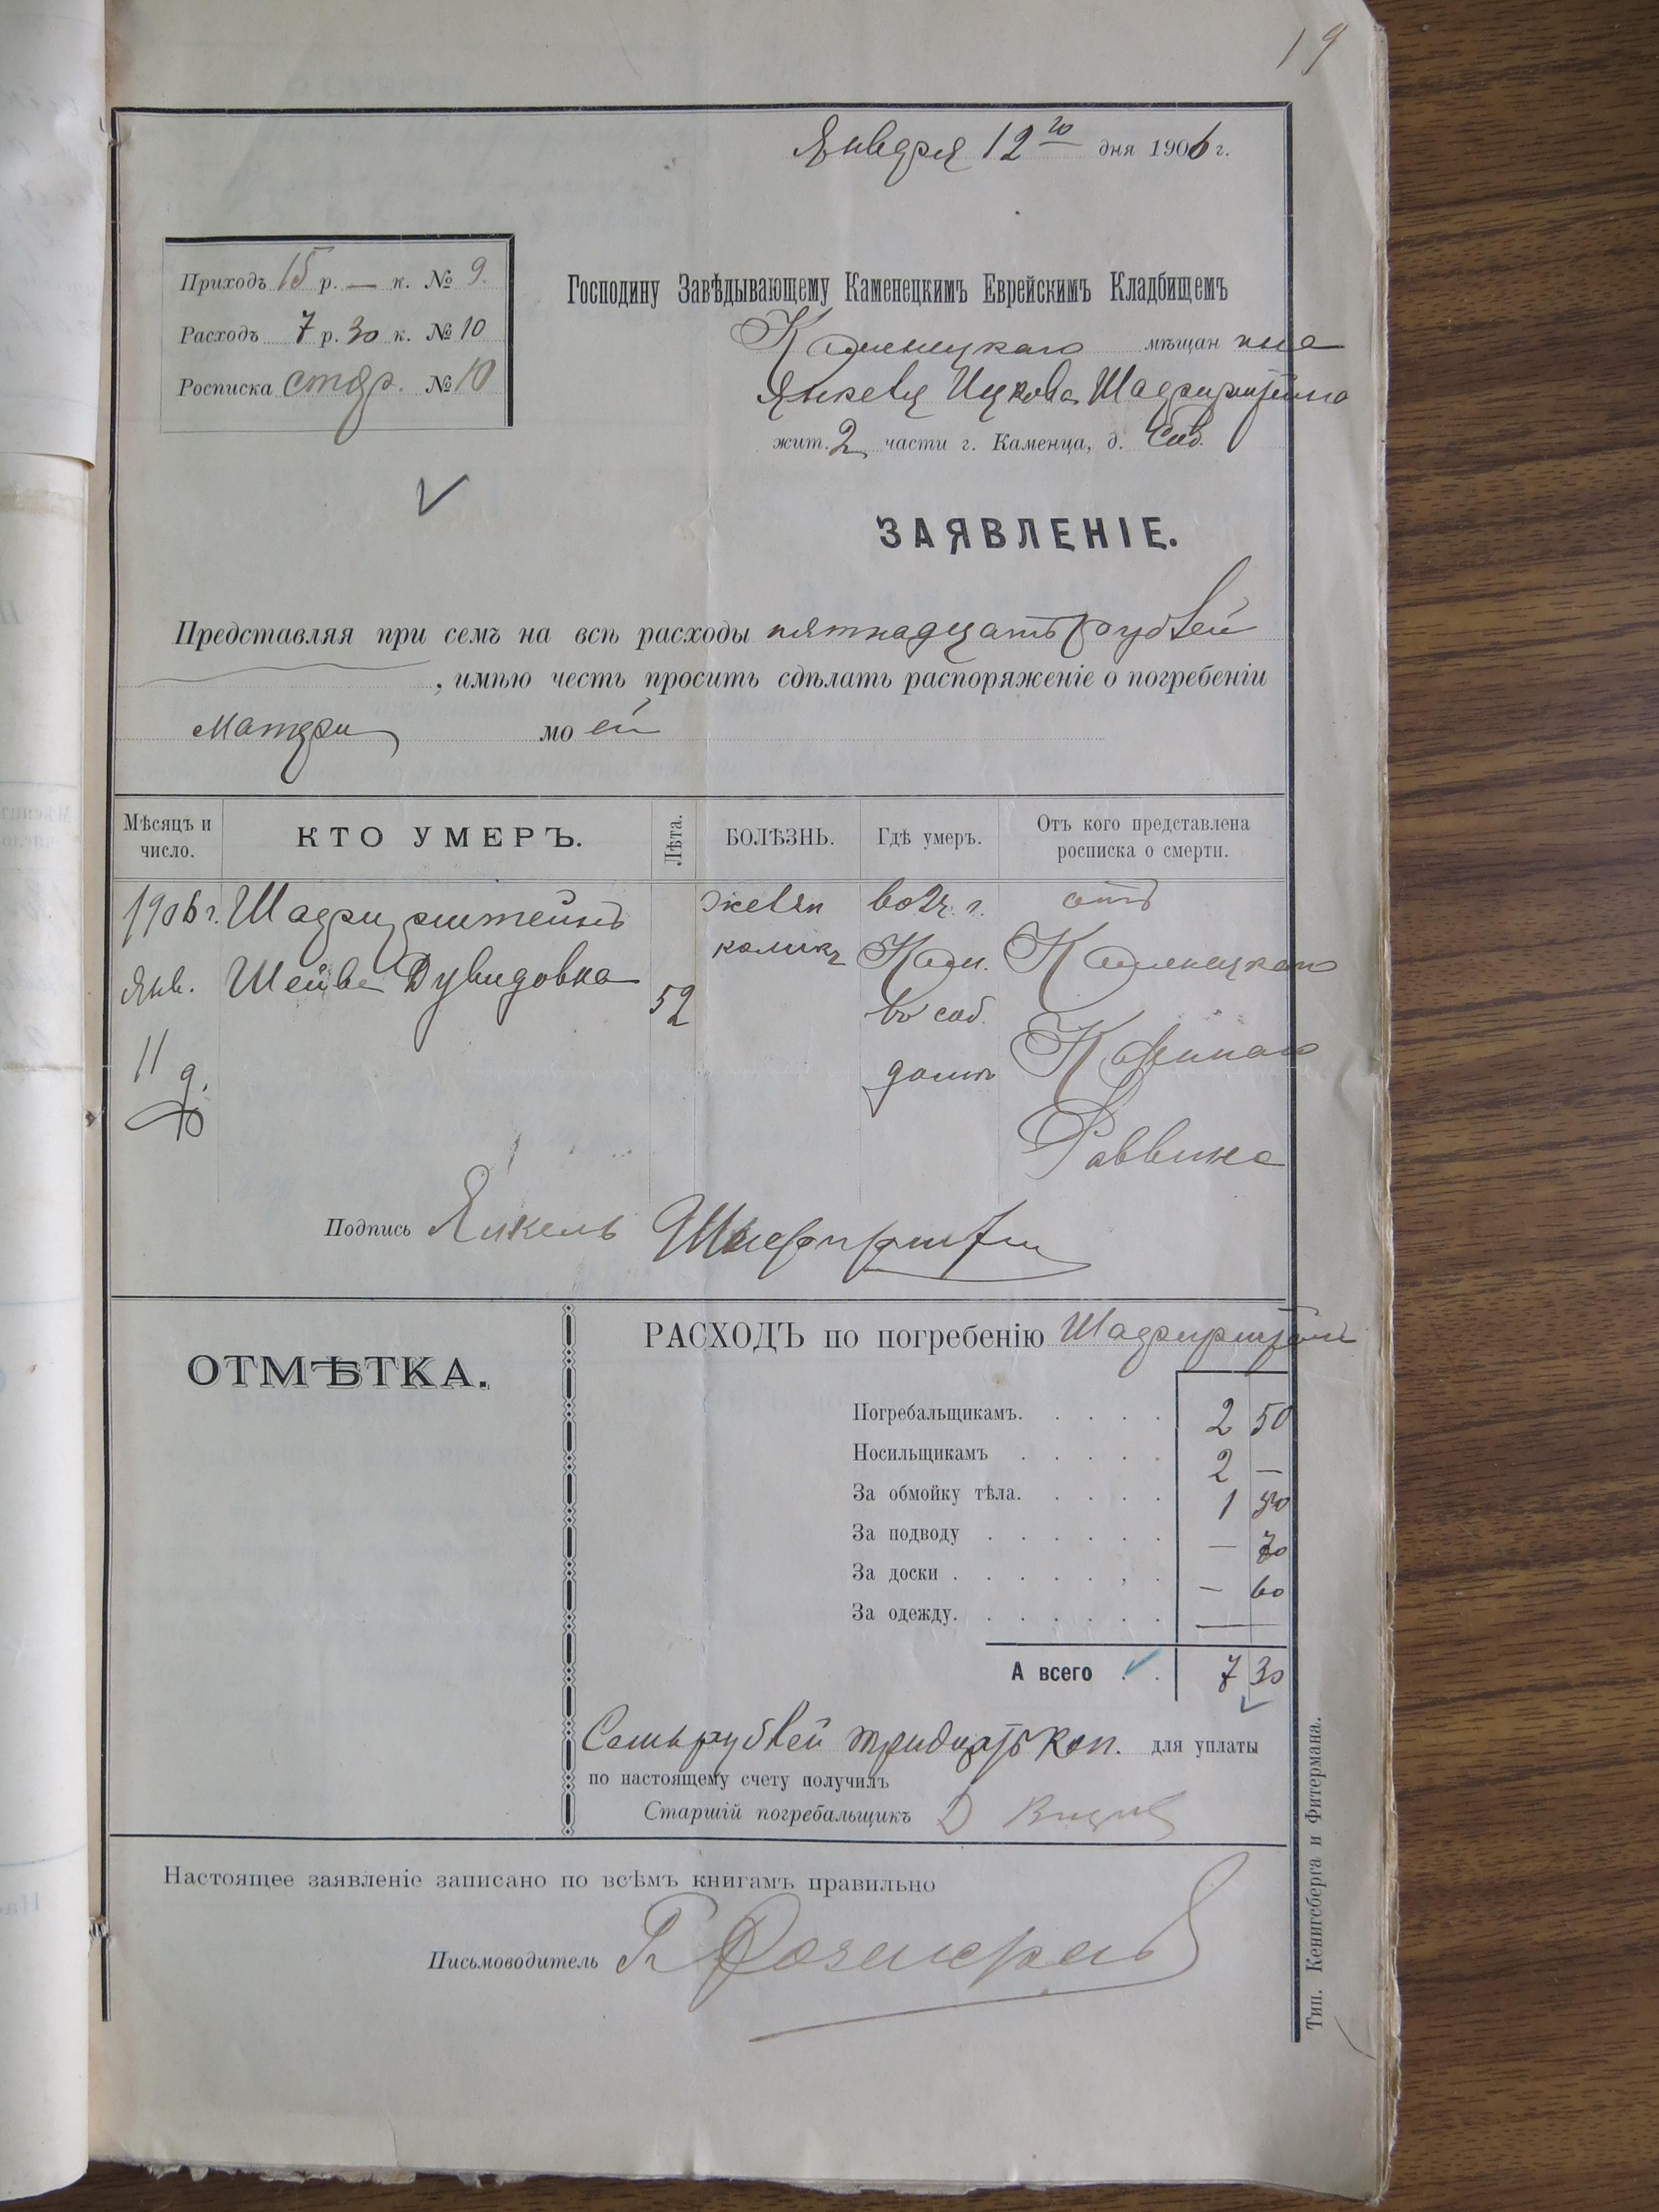 19
Января 12го дня 1906 г.
Приходъ 15 р. — к. № 9.
Расходъ 7 р. 30 к. № 10
Росписка стар. № 10
Господину Завѣдывающему Каменецкимъ Еврейскимъ Кладбищемъ
Каменецкаго мѣщанина
Янкеля Ицкова
жит. 2 части г. Каменца, д. Соб.
ЗАЯВЛЕНІЕ.
Представляя при семъ на всѣ расходы пятнадцать рублей
, имѣю честь просить сдѣлать распоряженіе о погребеніи
матери моей
Мѣсяцъ и число.
КТО УМЕРЪ.
Лѣта.
БОЛѢЗНЬ.
Гдѣ умеръ.
Отъ кого представлена росписка о смерти.
1906 г.
Янв.
11 д.
Шейва Дувидовна
52
во 2 ч. г.
Кам.
въ соб.
домѣ
отъ
Каменецкаго
Казеннаго
Раввина
Подпись Янкель
РАСХОДЪ по погребенію
ОТМѢТКА.
Погребальщикамъ. 2 50
Носильщикамъ 2 —
За обмойку тѣла. 1 50
За подводу — 70
За доски — 60
За одежду. —
А всего 7 30
Семь рублей тридцать коп. для уплаты
по настоящему счету получилъ
Старшій погребальщикъ Д
Настоящее заявленіе записано по всѣмъ книгамъ правильно
Письмоводитель
Тип. Кенигсберга и Фитермана.